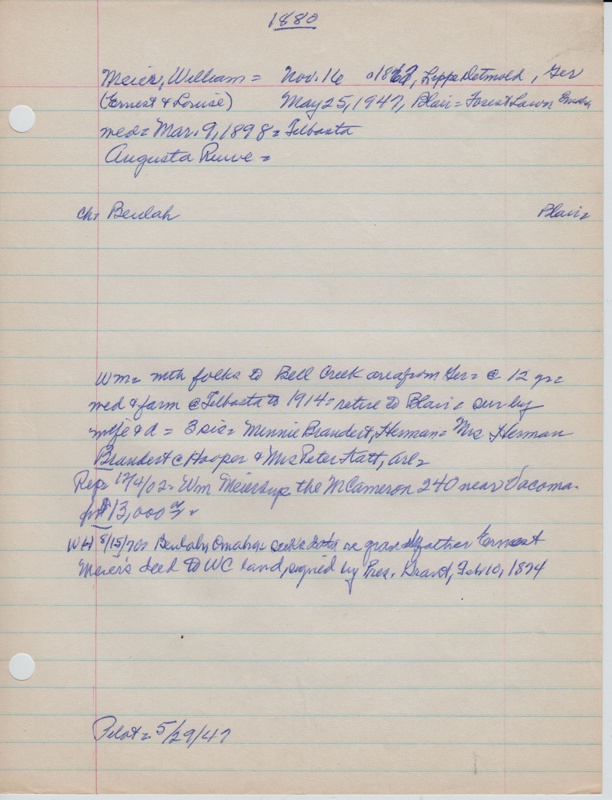 1880
Meier, William = Nov. 16 1862, Lippe Detmold, Ger
(Ernest & Louise) May 25, 1947, Blair = Forest Lawn Omaha
med = Mar. 9, 1898 = Telbasta
Augusta Ruwe =
Ch: Beulah Blair =
Wm = with folks to Bell Creek area from Ger = @ 12 yr =
med & farm @ Telbasta to 1914 = retire to Blair = sur by
wife & d = 3 sis = Minnie Brandert, Herman = Mrs. Herman
Brandert @ Hooper & Mrs Peter Katt, Arl =
Rep = 12/4/02 = Wm Meier buys the McCameron 240 near Vacoma
for $13,000 =
WH 5/15/70 = Beulah, Omaha = seeks data on grandfather Ernest
Meier's deed to WC land, signed by Pres. Grant, Feb 10, 1874
Pilot = 5/29/47